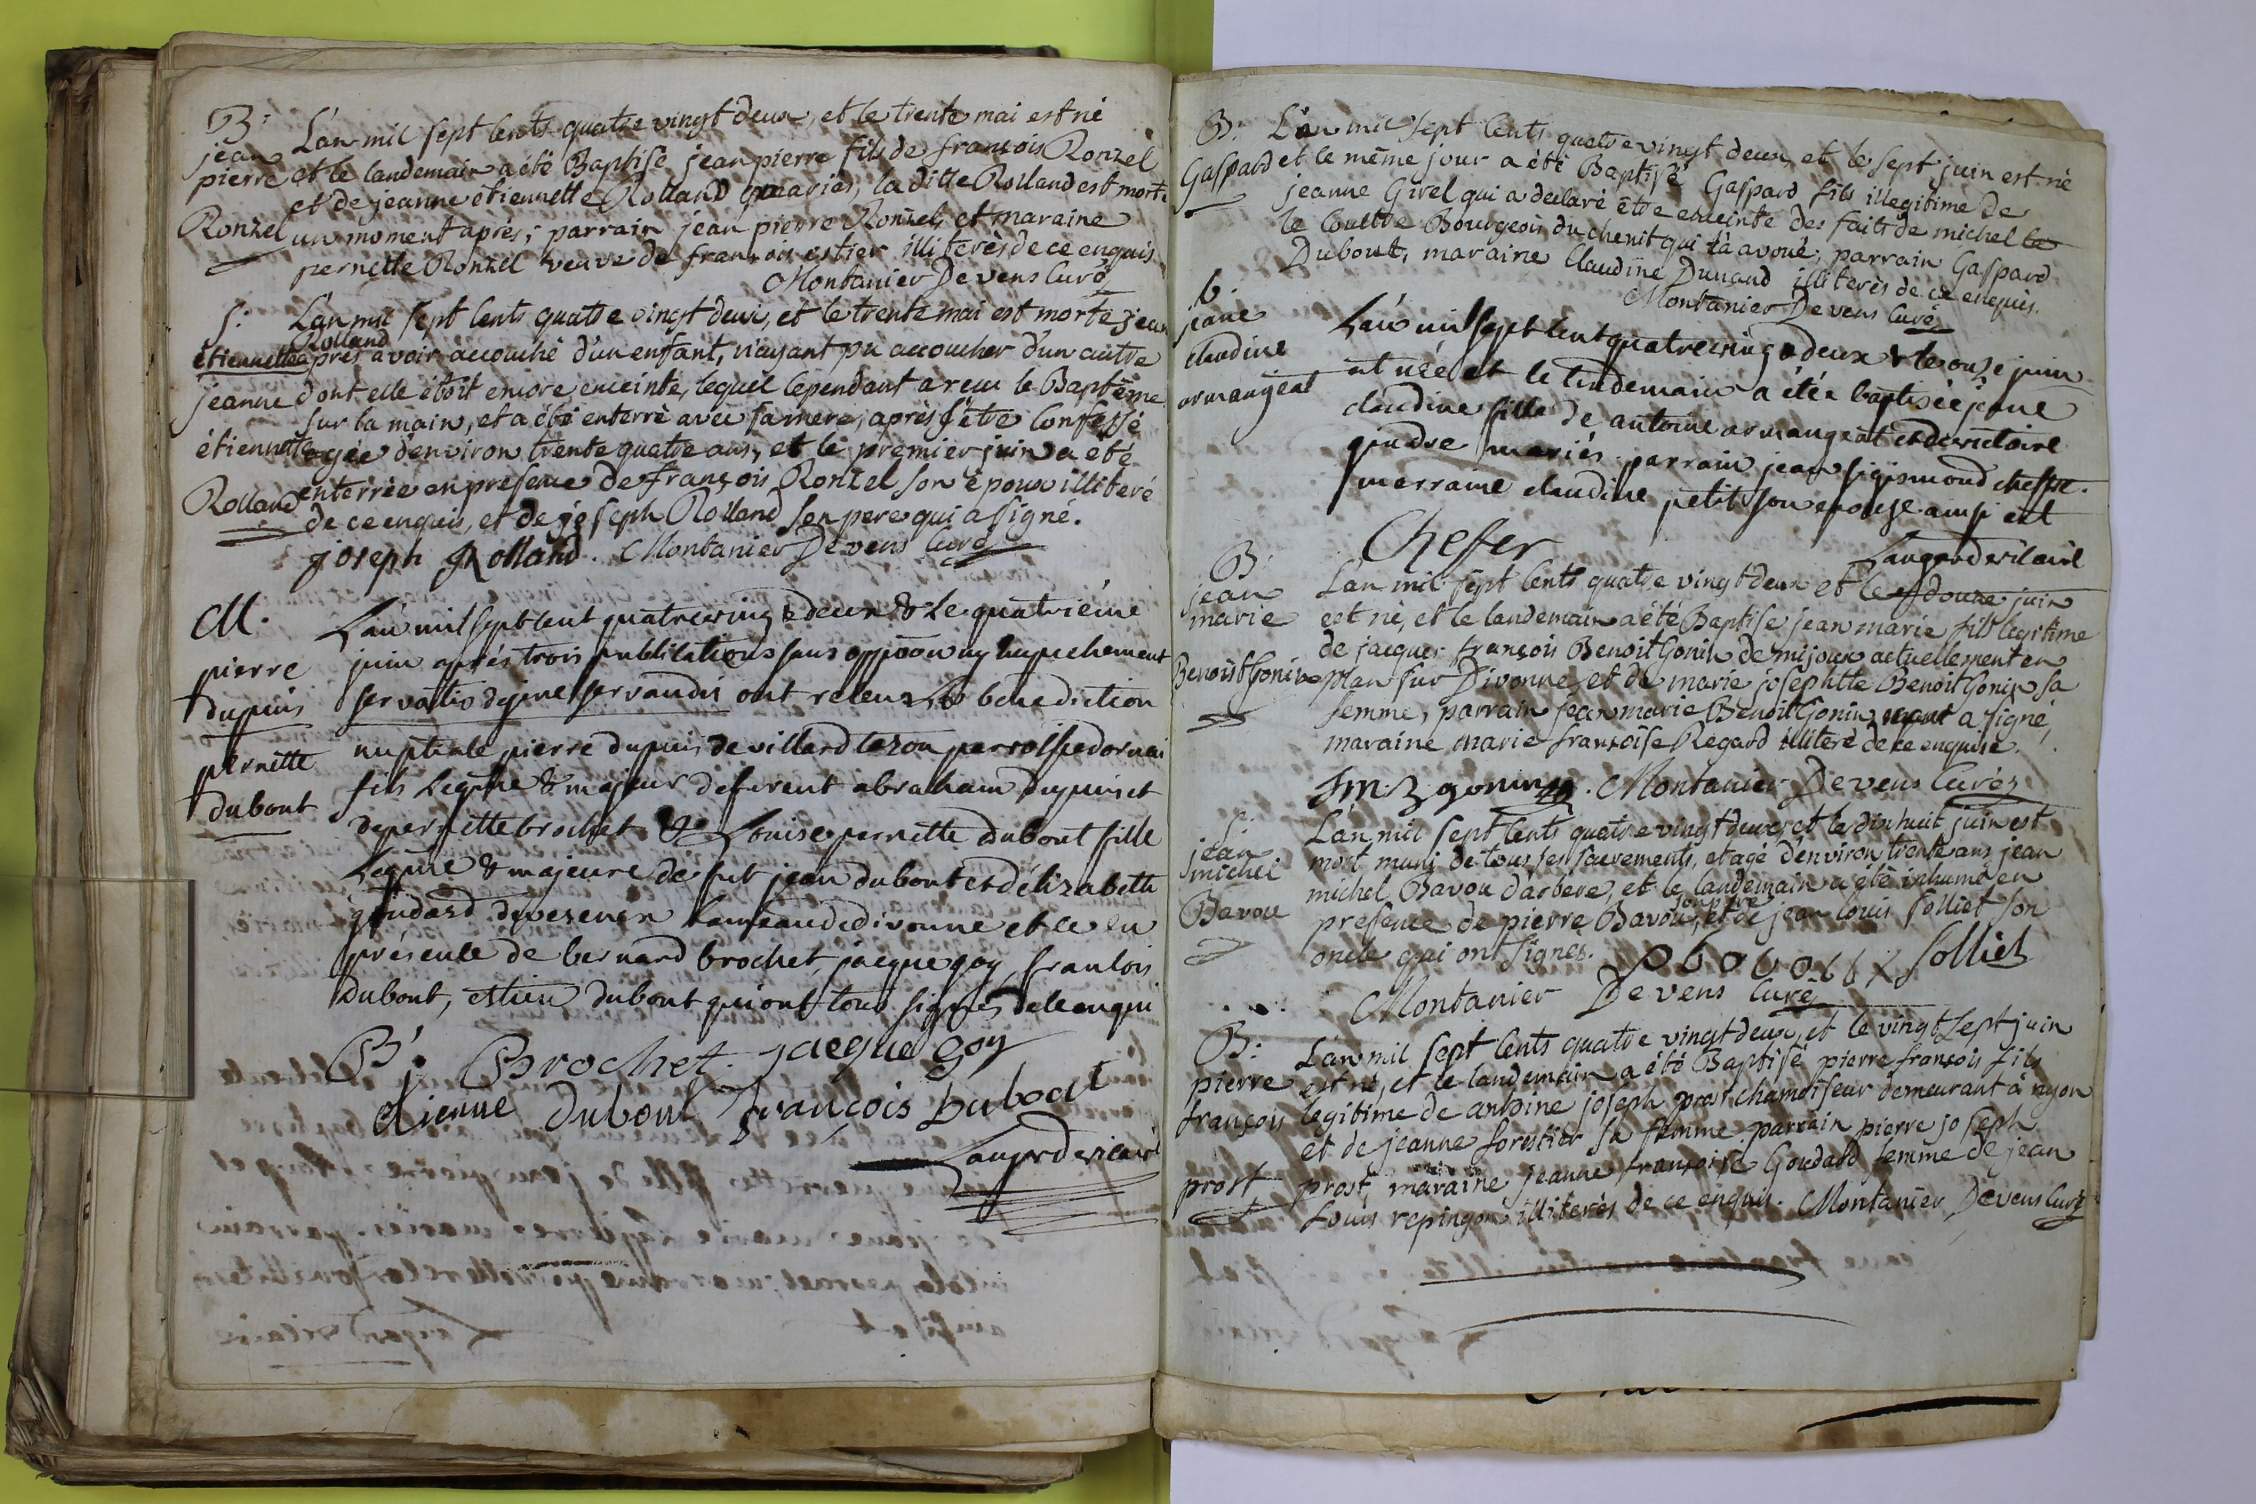 B:
jean
pierre
Ronzel
L'an mil sept cents quatre vingt deux, et le trente mai est né
et le landemain a été Baptisé jean pierre fils de françois Ronzel
et de jeanne étiennette Rolland mariés, la ditte Rolland est morte
un moment après; parrain jean pierre Ronzel, et maraine
pernette Ronzel veuve de françois estier illiterès de ce enquis.
Montanier De vens Curé
S:
étiennette
jeanne
étiennette
Rolland
L'an mil sept cents quatre vingt deux, et le trente mai est morte jeanne
Rolland
après avoir accouché d'un enfant, n'ayant pu accoucher d'un autre
dont elle étoit encore enceinte, lequel cependant a reçu le Baptême
sur la main, et a été enterré avec sa mere, après s'être Confessé
agée d'environ trente quatre ans, et le premier juin a été
enterrée en presence de françois Ronzel son époux illiteré
de ce enquis, et de joseph Rolland son pere qui a signé.
joseph Rolland. Montanier De vens Curé
M.
pierre
dupuis
pernette
dubout
L'an mil sept cent quatrevingt deux & le quatriéme
juin aprés trois publications sans oppoôn ny empechement
servatis dejure servandis ont receus la benediction
nuptiale pierre dupuis de villard tezon parroisse dornai
fils legitime & majeur de fut abraham dupuis et
de pernette brochet & Louise pernette dubout fille
Legitime & majeure de fut jean dubout et d'élizabeth
goudard de vesenex hameau de divonne et ce en
présence de bernard brochet, jacque goy, francois
dubout, estiene dubout qui ont tous signés de ce enqui
B. Brochet. jacque goy
etienne Dubout françois Dubout
Laugard vicaire
B:
Gaspard
L'an mil sept cents quatre vingt deux, et le sept juin est né
et le même jour a été Baptisé Gaspard fils illegitime de
jeanne Girel qui a declaré être enceinte des faits de michel le
le Coultre Bourgeois du chenit qui l'a avoué, parrain Gaspard
Dubout, maraine Claudine Dunand illiterès de ce enquis.
Montanier De vens Curé
b.
jeane
claudine
armangeat
L'an mil sept cent quatrevingt deux & le onze juin
est née et le lendemain a étée baptisée jeane
claudine fille de antoine armangeat et de victoire
gindre mariés. parrain jean sigismond cheffre.
marraine claudine petit son epouse ainsi est
Cheffer
Laugard vicaire
B:
jean
marie
Benoit Gonin
L'an mil sept cents quatre vingt deux et le douze juin
est né, et le landemain a été Baptisé jean marie fils legitime
de jacques françois Benoit Gonin de mijoux actuellement en
plan sur Divonne, et de marie josephtte Benoit Gonin sa
femme, parrain jean marie Benoit Gonin a signé,
maraine marie françoise Regard illiteré de ce enquise.
Montanier De vens Curé
S:
jean
michel
Bavou
L'an mil sept cents quatre vingt deux, et le dixhuit juin est
mort muni de tous ses sacrements, et agé d'environ trente ans jean
michel Bavou d'arbère, et le landemain a été inhumé en
son pere
presence de pierre Bavou, et de jean louis solliet son
oncle qui ont signés. Solliet
Montanier De vens Curé
B:
pierre
françois
prost
L'an mil sept cents quatre vingt deux, et le vingt sept juin
est né, et le landemain a été Baptisé pierre françois fils
legitime de antoine joseph prost chamoiseur demeurant à nyon
et de jeanne forestier sa femme. parrain pierre joseph
prost, maraine jeanne françoise Goudard femme de jean
Louis repingon illiterès de ce enquis. Montanier De vens Curé